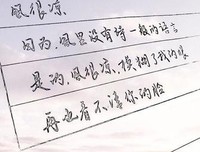 风很凉
因为，风里没有诗一般的语言
是的，风很凉，模糊了我的眼
再也看不清你的脸